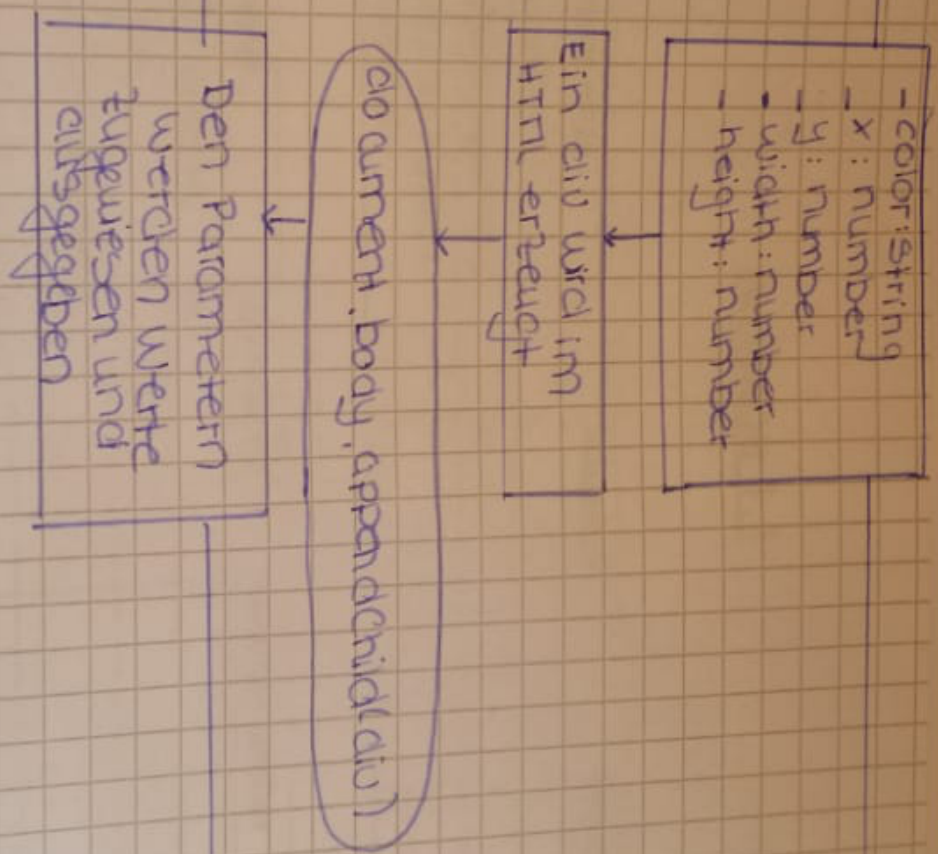 - color: string
- x: number
- y: number
- width: number
- height: number
Ein div wird im
HTML erzeugt
document.body.appendChild(div)
Den Parametern
werden Werte
zugewiesen und
ausgegeben